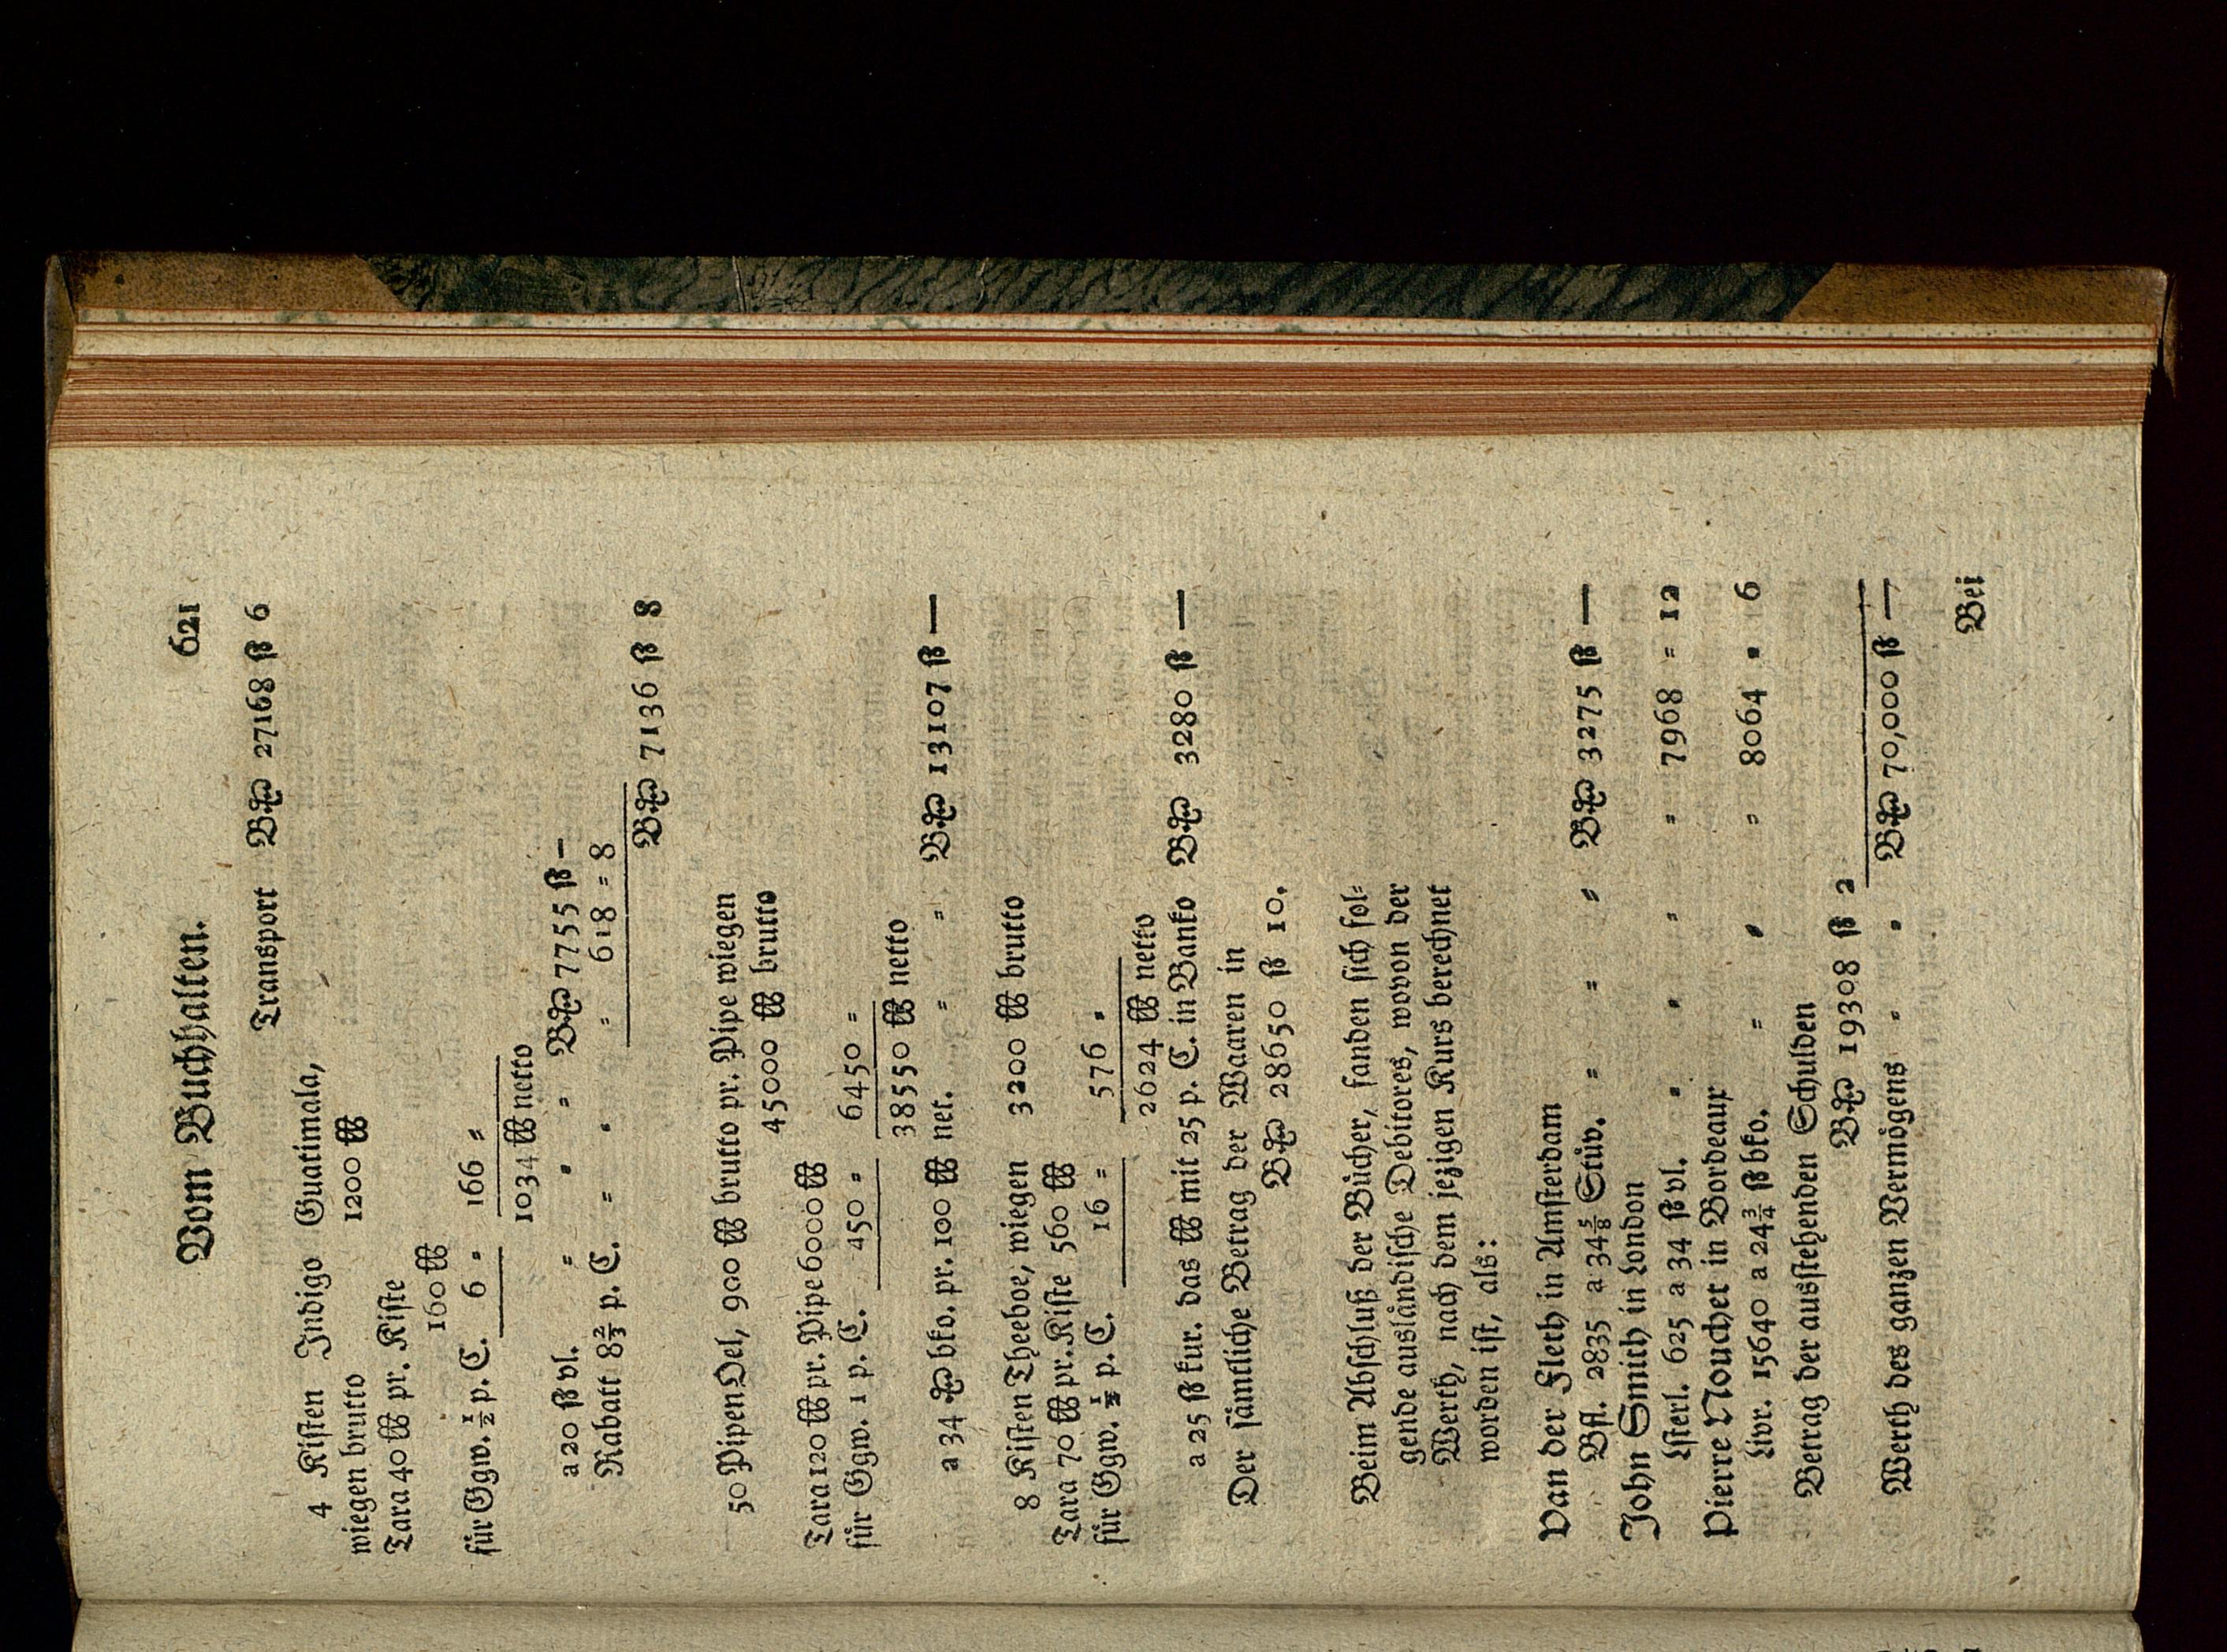 Vom Buchhalten. 621
Transport B℔ 27168 ß 6
4 Kisten Indigo Guatimala,
wiegen brutto 1200 ℔
Tara 40 ℔ pr. Kiste
160 ℔
für Ggw. ½ p. C. 6 = 166 =
1034 ℔ netto
a 20 ß vl. = = = B 7755 ß —
Rabatt 8⅔ p. C. = = = 618 = 8
B 7136 ß 8
50 Pipen Oel, 900 ℔ brutto pr. Pipe wiegen
45000 ℔ brutto
Tara 120 ℔ pr. Pipe 6000 ℔
für Ggw. 1 p. C. 450 = 6450 =
38550 ℔ netto
a 34 bko. pr. 100 ℔ net. = = B 13107 ß —
8 Kisten Theeboe, wiegen 3200 ℔ brutto
Tara 70 ℔ pr. Kiste 560 ℔
für Ggw. ½ p. C. 16 = 576 =
2624 ℔ netto
a 25 ß kur. das ℔ mit 25 p. C. in Banko B 3280 ß —
Der sämtliche Betrag der Waaren in
B 28650 ß 10.
Beim Abschluß der Bücher, fanden sich fol=
gende ausländische Debitores, wovon der
Werth, nach dem jezigen Kurs berechnet
worden ist, als:
Van der Fleth in Amsterdam
Bfl. 2835 a 34⅝ Stüv. = = = B 3275 ß —
John Smith in London
Lsterl. 625 a 34 ß vl. = = = = 7968 = 12
Pierre Nouchet in Bordeaux
Livr. 15640 a 24¾ ß bko. = = = 8064 = 6
Betrag der ausstehenden Schulden
B 19308 ß 2
Werth des ganzen Vermögens = = B 70,000 ß —
Bei